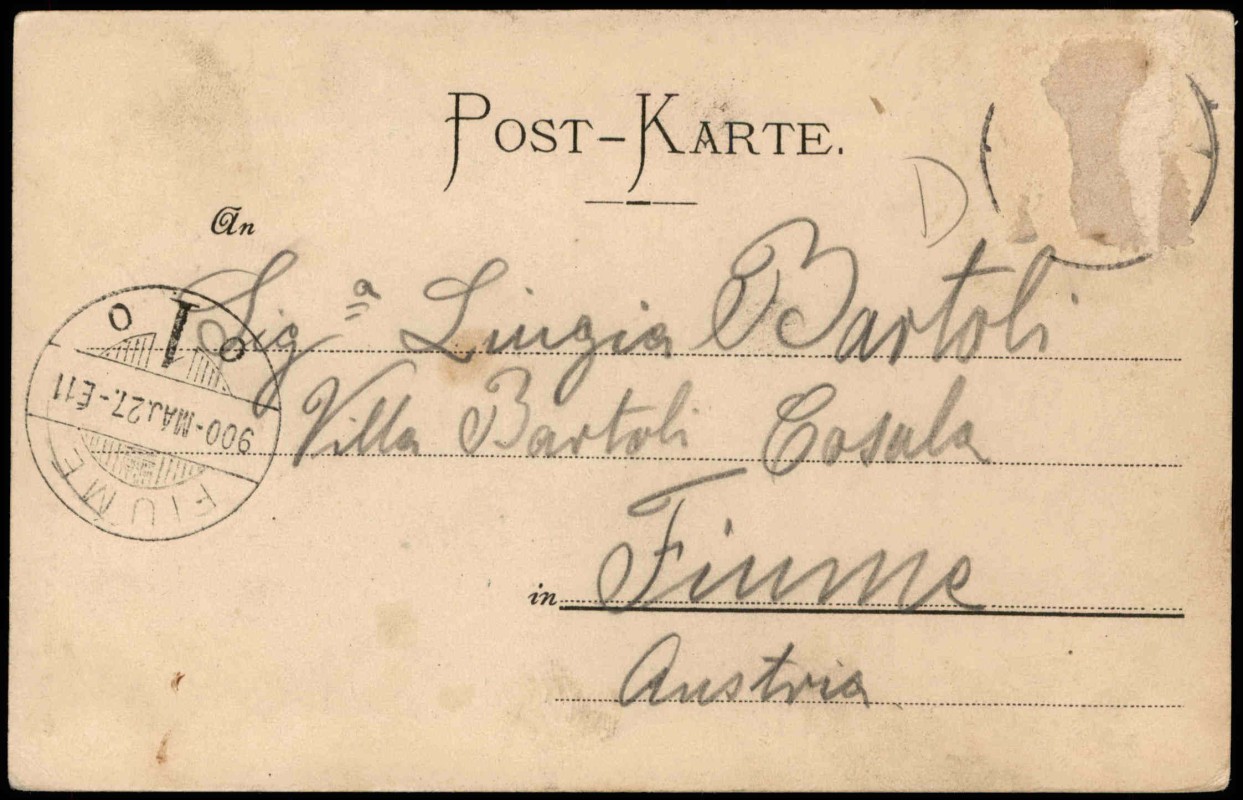 POST-KARTE.
D
An
Sigª Luigia Bartoli
Villa Bartoli Cosala
in Fiume
Austria
900-MÁJ.27.-É11
FIUME